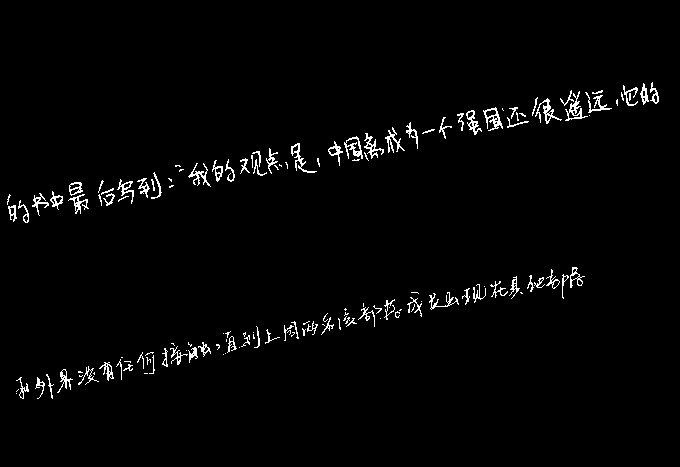 的书中最后写到：“我的观点是，中国离成为一个强国还很遥远，它的
和外界没有任何接触，直到上周两名该部落成员出现在其他部落